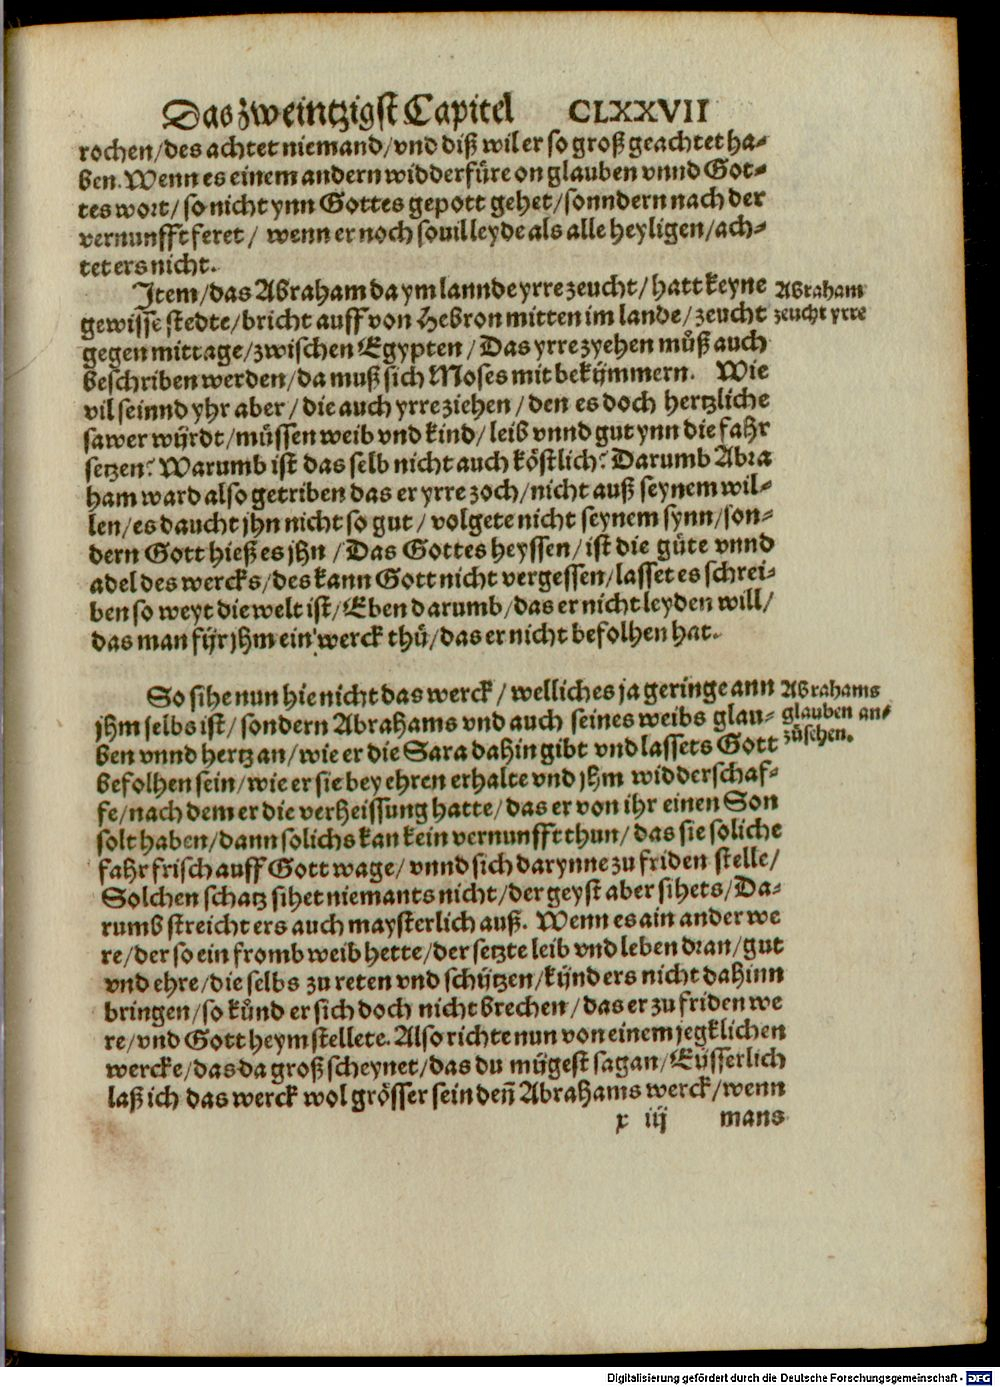 Das zweintzigst Capitel CLXXVII
rochen/des achtet niemand/vnd diß wil er so groß geachtet ha-
ben. Wenn es einem andern widderfüre on glauben vnnd Got-
tes wort/ so nicht ynn Gottes gepott gehet/sonndern nach der
vernunfft feret/ wenn er noch souil leyde als alle heyligen/ach-
tet ers nicht.
Item/das Abraham da ym lannde yrre zeucht/hatt keyne
gewisse stedte/bricht auff von Hebron mitten im lande/zeucht
gegen mittage/zwischen Egypten/Das yrre zyehen müß auch
beschriben werden/da muß sich Moses mit bekÿmmern. Wie
vil seinnd yhr aber/die auch yrre ziehen/den es doch hertzliche
sawer wÿrdt/müssen weib vnd kind/leib vnnd gut ynn die fahr
setzen? Warumb ist das selb nicht auch köstlich? Darumb Abra
ham ward also getriben das er yrre zoch/nicht auß seynem wil-
len/es daucht jhn nicht so gut/ volgete nicht seynem synn/son-
dern Gott hieß es jhn/Das Gottes heyssen/ist die güte vnnd
adel des wercks/des kann Gott nicht vergessen/lasset es schrei-
ben so weyt die welt ist/Eben darumb/das er nicht leyden will/
das man fÿr jhm ein werck thů/das er nicht befolhen hat.
Abraham
zeucht yrre
So sihe nun hie nicht das werck/welliches ja geringe ann
jhm selbs ist/sondern Abrahams vnd auch seines weibs glau-
ben vnnd hertz an/wie er die Sara dahin gibt vnd lassets Gott
befolhen sein/wie er sie bey ehren erhalte vnd jhm widderschaf-
fe/nach dem er die verheissung hatte/das er von ihr einen Son
solt haben/dann solichs kan kein vernunfft thun/das sie soliche
fahr frisch auff Gott wage/vnnd sich darynne zu friden stelle/
Solchen schatz sihet niemants nicht/der geyst aber sihets/Da-
rumb streicht ers auch maysterlich auß. Wenn es ain ander we
re/der so ein fromb weib hette/der setzte leib vnd leben dran/gut
vnd ehre/die selbs zu reten vnd schÿtzen/kÿnd ers nicht dahinn
bringen/so kůnd er sich doch nicht brechen/das er zu friden we
re/vnd Gott heym stellete. Also richte nun von einem jegklichen
wercke/das da groß scheynet/das du mÿgest sagan/Eüsserlich
laß ich das werck wol grösser sein deñ Abrahams werck/wenn
Abrahams
glauben an-
züsehen.
x iij mans
Digitalisierung gefördert durch die Deutsche Forschungsgemeinschaft - DFG